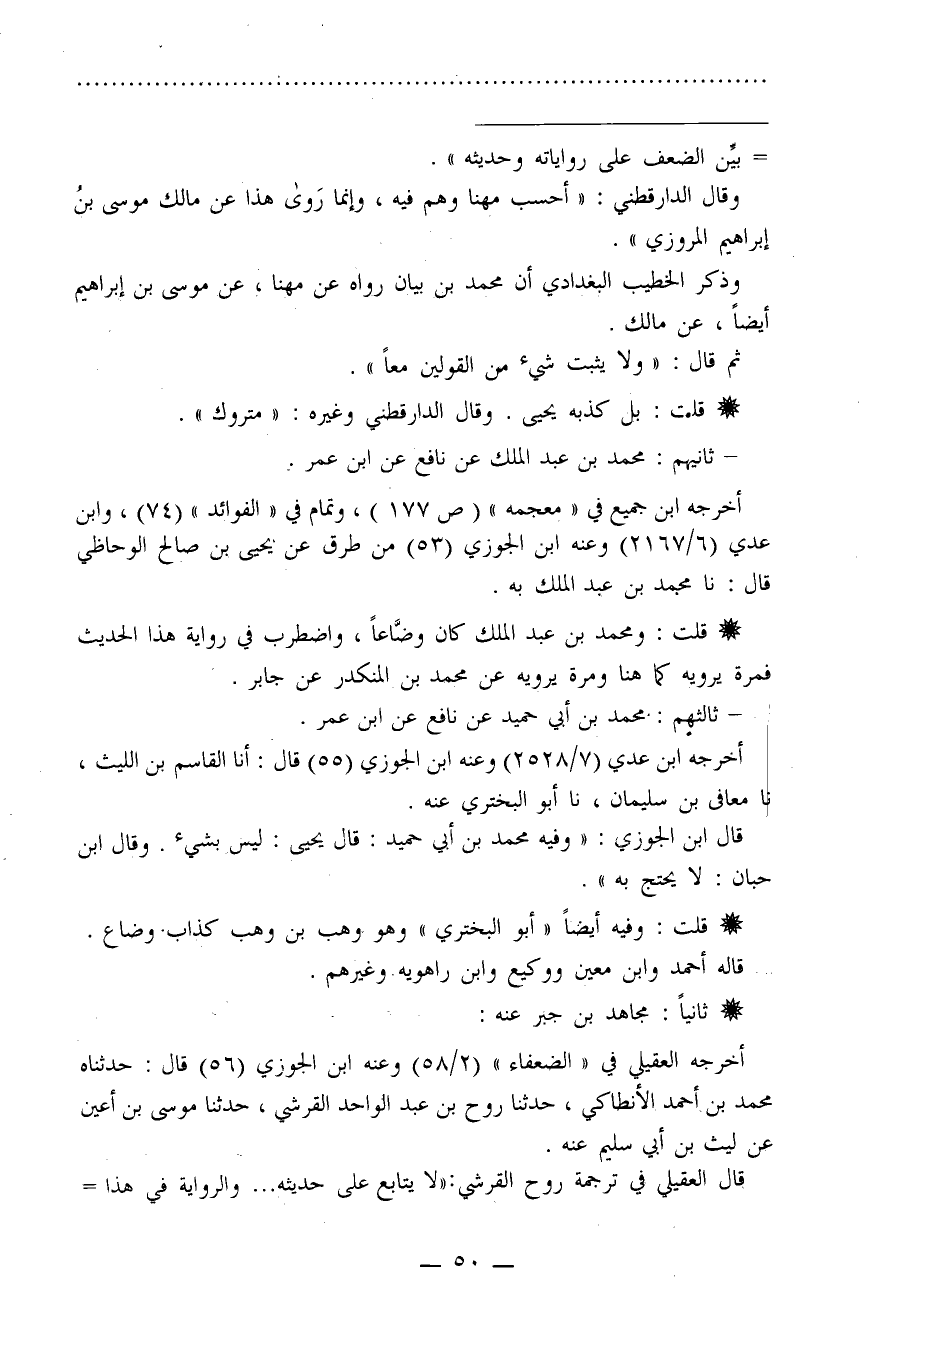 = بيِّن الضعف على رواياته وحديثه » .
وقال الدارقطني : « أحسب مهنا وهم فيه ، وإنما رَوىٰ هذا عن مالك موسى بنُ
إبراهيم المروزي » .
وذكر الخطيب البغدادي أن محمد بن بيان رواه عن مهنا ، عن موسى بن إبراهيم
أيضاً ، عن مالك .
ثم قال : « ولا يثبت شيء من القولين معاً » .
✹ قلت : بل كذبه يحيى . وقال الدارقطني وغيره : « متروك » .
– ثانيهم : محمد بن عبد الملك عن نافع عن ابن عمر .
أخرجه ابن جميع في « معجمه » ( ص ١٧٧ ) ، وتمام في « الفوائد » (٧٤) ، وابن
عدي (٢١٦٧/٦) وعنه ابن الجوزي (٥٣) من طرق عن يحيى بن صالح الوحاظي
قال : نا محمد بن عبد الملك به .
✹ قلت : ومحمد بن عبد الملك كان وضَّاعاً ، واضطرب في رواية هذا الحديث
فمرة يرويه كما هنا ومرة يرويه عن محمد بن المنكدر عن جابر .
– ثالثهم : محمد بن أبي حميد عن نافع عن ابن عمر .
أخرجه ابن عدي (٢٥٢٨/٧) وعنه ابن الجوزي (٥٥) قال : أنا القاسم بن الليث ،
نا معافى بن سليمان ، نا أبو البختري عنه .
قال ابن الجوزي : « وفيه محمد بن أبي حميد : قال يحيى : ليس بشيء . وقال ابن
حبان : لا يحتج به » .
✹ قلت : وفيه أيضاً « أبو البختري » وهو وهب بن وهب كذاب وضاع .
قاله أحمد وابن معين ووكيع وابن راهويه وغيرهم .
✹ ثانياً : مجاهد بن جبر عنه :
أخرجه العقيلي في « الضعفاء » (٥٨/٢) وعنه ابن الجوزي (٥٦) قال : حدثناه
محمد بن أحمد الأنطاكي ، حدثنا روح بن عبد الواحد القرشي ، حدثنا موسى بن أعين
عن ليث بن أبي سليم عنه .
قال العقيلي في ترجمة روح القرشي :«لا يتابع على حديثه... والرواية في هذا =
— ٥٠ —